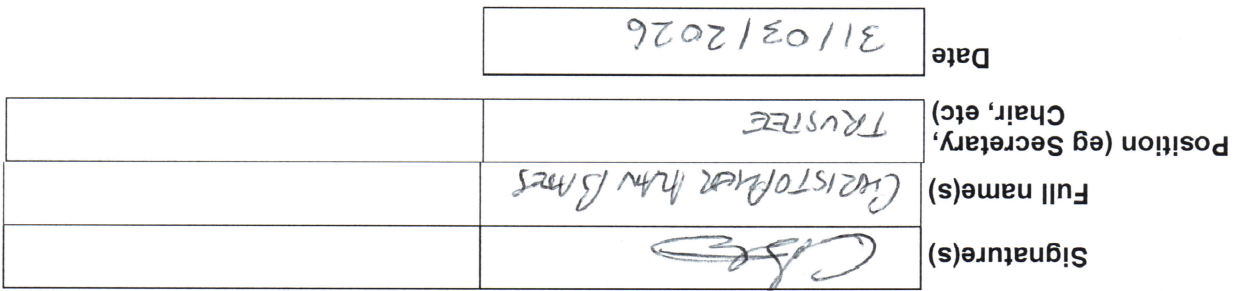 Signature(s)
Full name(s) CHRISTOPHER ALAN BATES
Position (eg Secretary, TRUSTEE
Chair, etc)
Date 31/03/2026